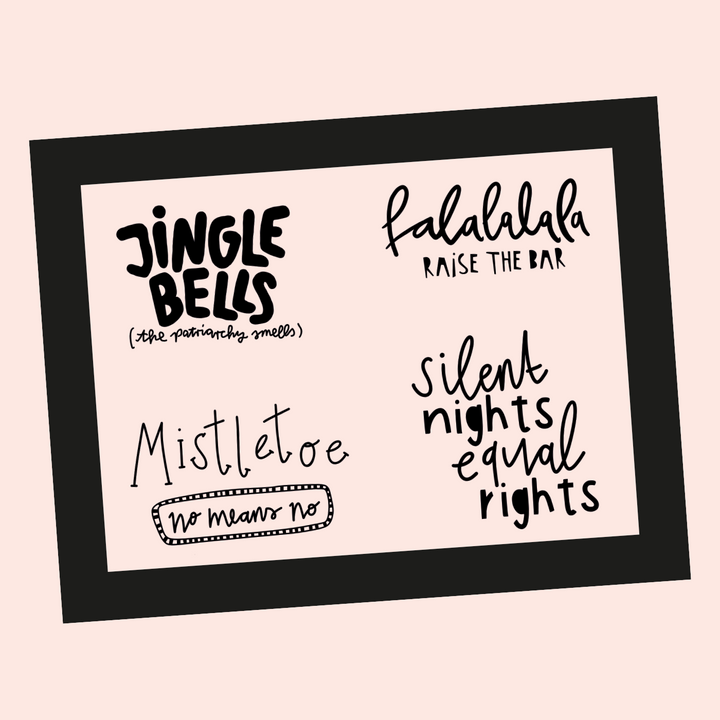 JiNGLE
BELLS
(the patriarchy smells)
falalalala
RAiSE THE BAR
Mistletoe
no means no
silent
nights
equal
rights